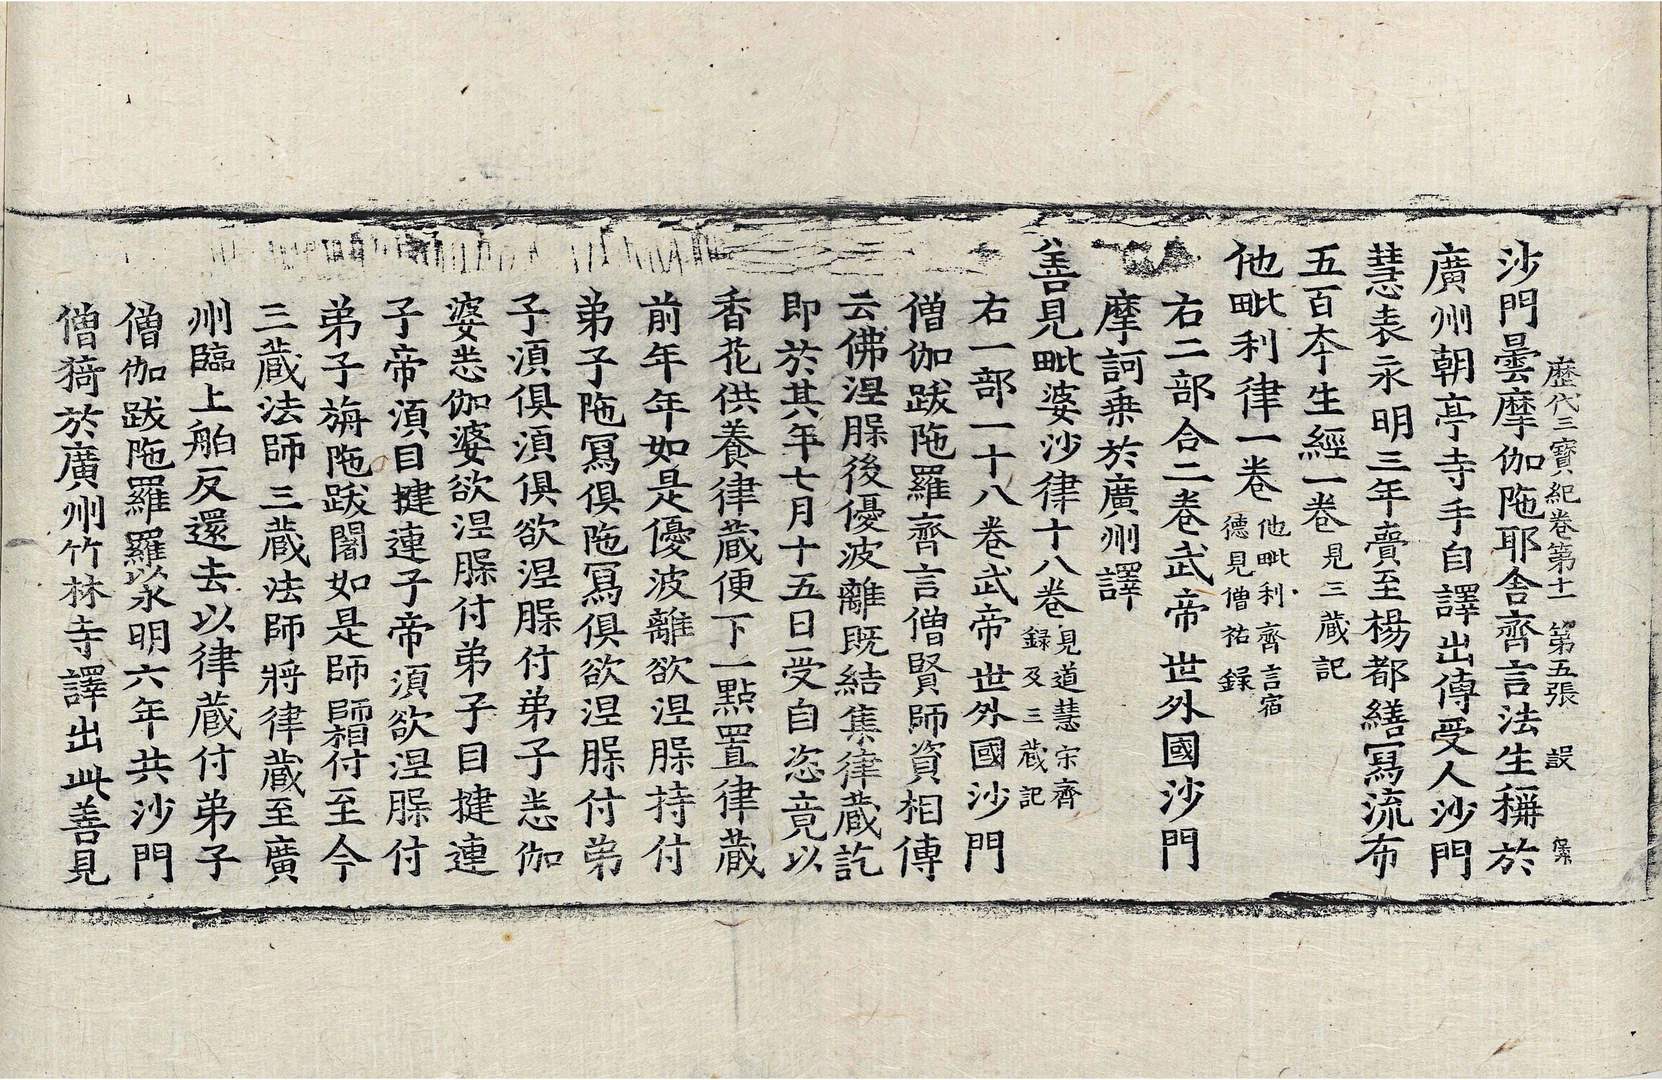 歷代三寶紀卷第十一 第五張 設
沙門曇摩伽陁耶舍齊言法生稱於
廣州朝亭寺手自譯出傳受人沙門
慧表永明三年賷至楊都繕寫流布
五百本生經一卷見三藏記
他毗利律一卷他毗利齊言宿
德見僧祐錄
右二部合二卷武帝世外國沙門
摩訶乗於廣州譯
善見毗婆沙律十八卷見道慧宋齊
録及三藏記
右一部一十八卷武帝世外國沙門
僧伽跋陁羅齊言僧賢師資相傳
云佛涅槃後優波離既結集律藏訖
即於其年七月十五日受自恣竟以
香花供養律藏便下一點置律藏
前年年如是優波離欲涅槃持付
弟子陁寫俱陁寫俱欲涅槃付弟
子湏俱湏俱欲涅槃付弟子悉伽
婆悉伽婆欲涅槃付弟子目揵連
子帝湏目揵連子帝湏欲涅槃付
弟子旃陁跋闍如是師師相付至今
三藏法師三藏法師將律藏至廣
州臨上舶反還去以律藏付弟子
僧伽跋陁羅羅以永明六年共沙門
僧猗於廣州竹林寺譯出此善見